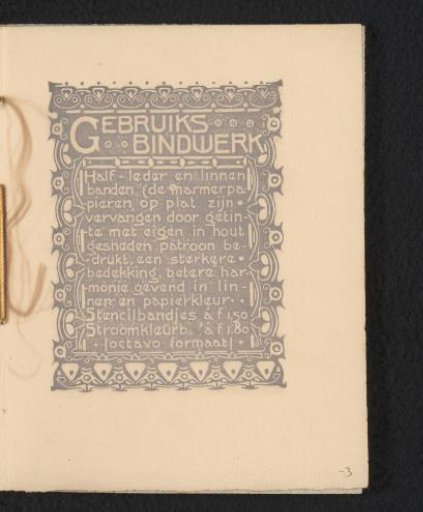 GEBRUIKS
BINDWERK
Half-leder en linnen
banden (de marmerpa-
pieren op plat zijn
vervangen door getin-
te met eigen in hout
gesneden patroon be-
drukt, een sterkere
bedekking, betere har-
monie gevend in lin-
nen en papierkleur.
Stencilbandjes á f 1.50
Stroomkleurb. á f 1.80
[octavo formaat]
-3